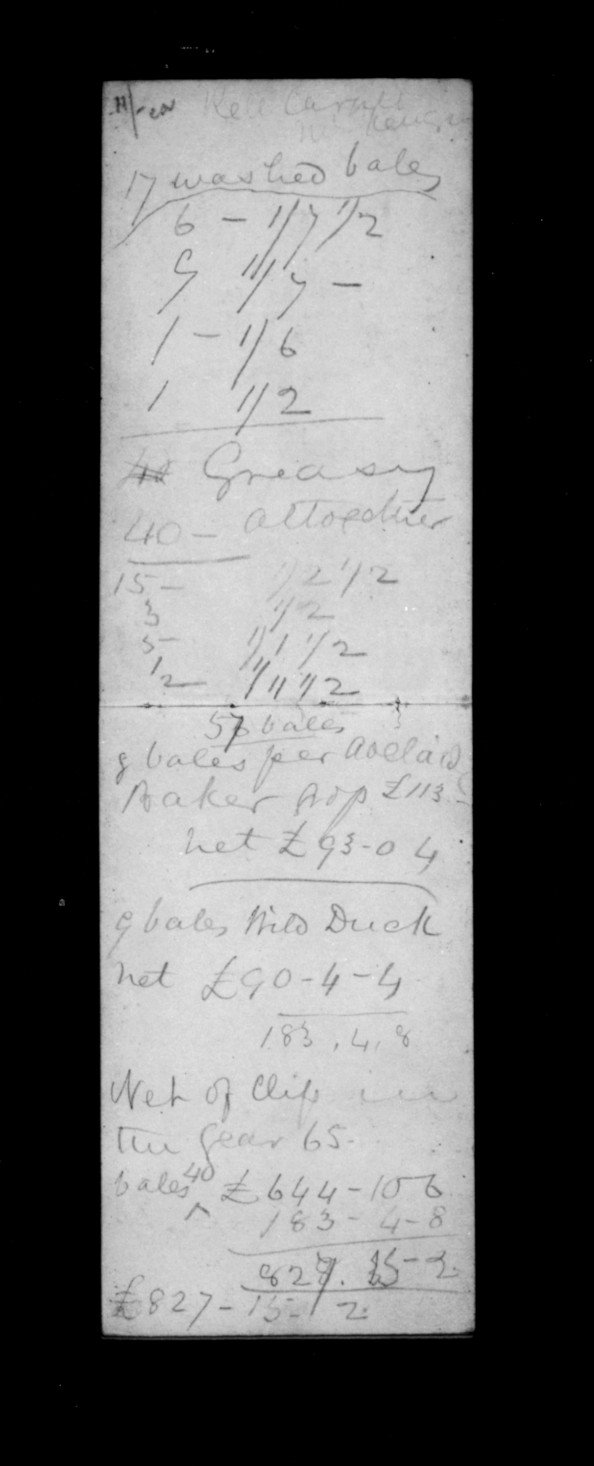 17 washed bales
6 - 1/7 1/2
9 1/7 -
1 - 1/6
1 1/2
Greasy
40 - altogether
15 - 1/2 1/2
3 1/2
5 1/1 1/2
12 1/11 1/2
57 bales
9 bales per Adelaid
Baker grop £113
net £93-0 4
9 bales Wild Duck
net £90-4-4
183.4.8
Net of Clip in
the year 65-
bales 40 £644-10 6
183-4-8
827.15-2
£827-15-2